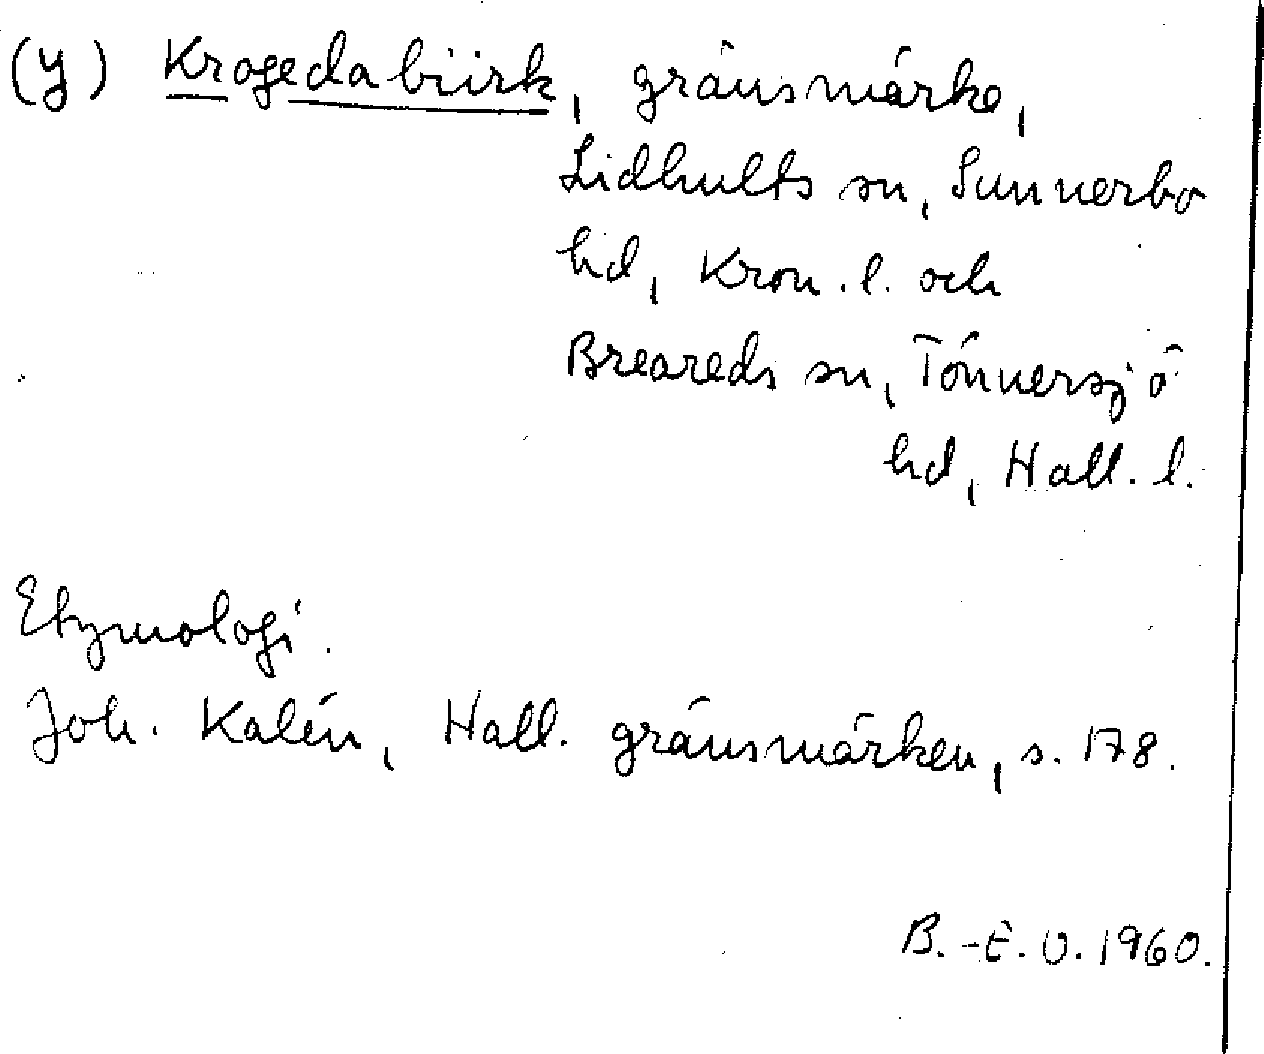 (y) Krogedabiirk, gränsmärke,
Lidhults sn, Sunnerbo
hd, Kron. l. och
Breareds sn, Tönnersjö
hd, Hall. l.
Etymologi.
Joh. Kalén, Hall. gränsmärken, s. 178.
B.-E. O. 1960.